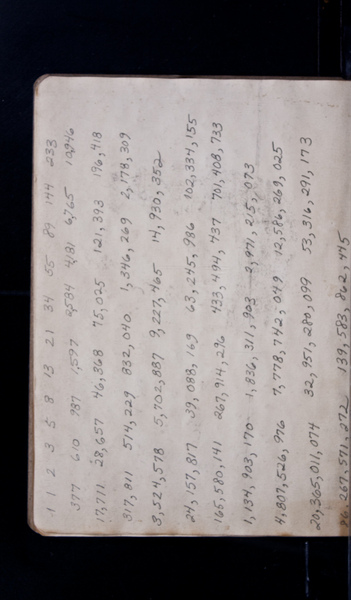 1 1 2 3 5 8 13 21 34 55 89 144 233
377 610 987 1,597 2,584 4,181 6,765 10,946
17,711 28,657 46,368 75,025 121,393 196,418
317,811 514,229 832,040 1,346,269 2,178,309
3,524,578 5,702,887 9,227,465 14,930,352
24,157,817 39,088,169 63,245,986 102,334,155
165,580,141 267,914,296 433,494,437 701,408,733
1,134,903,170 1,836,311,903 2,971,215,073
4,807,526,976 7,778,742,049 12,586,269,025
20,365,011,074 32,951,280,099 53,316,291,173
86,267,571,272 139,583,862,445